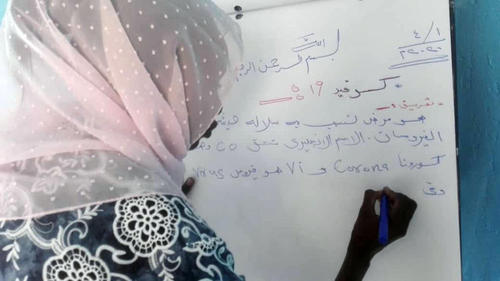 ٤/١
٢٠٢٠م
الله
بسم الله الرحمن الرحيم
* كوفيد ١٩ %
* تعريف
هو مرض تسبب به سلالة
الفيروسات. الاسم الإنجليزي مشتق CO
كورونا Corona و Vi هو فيروس virus